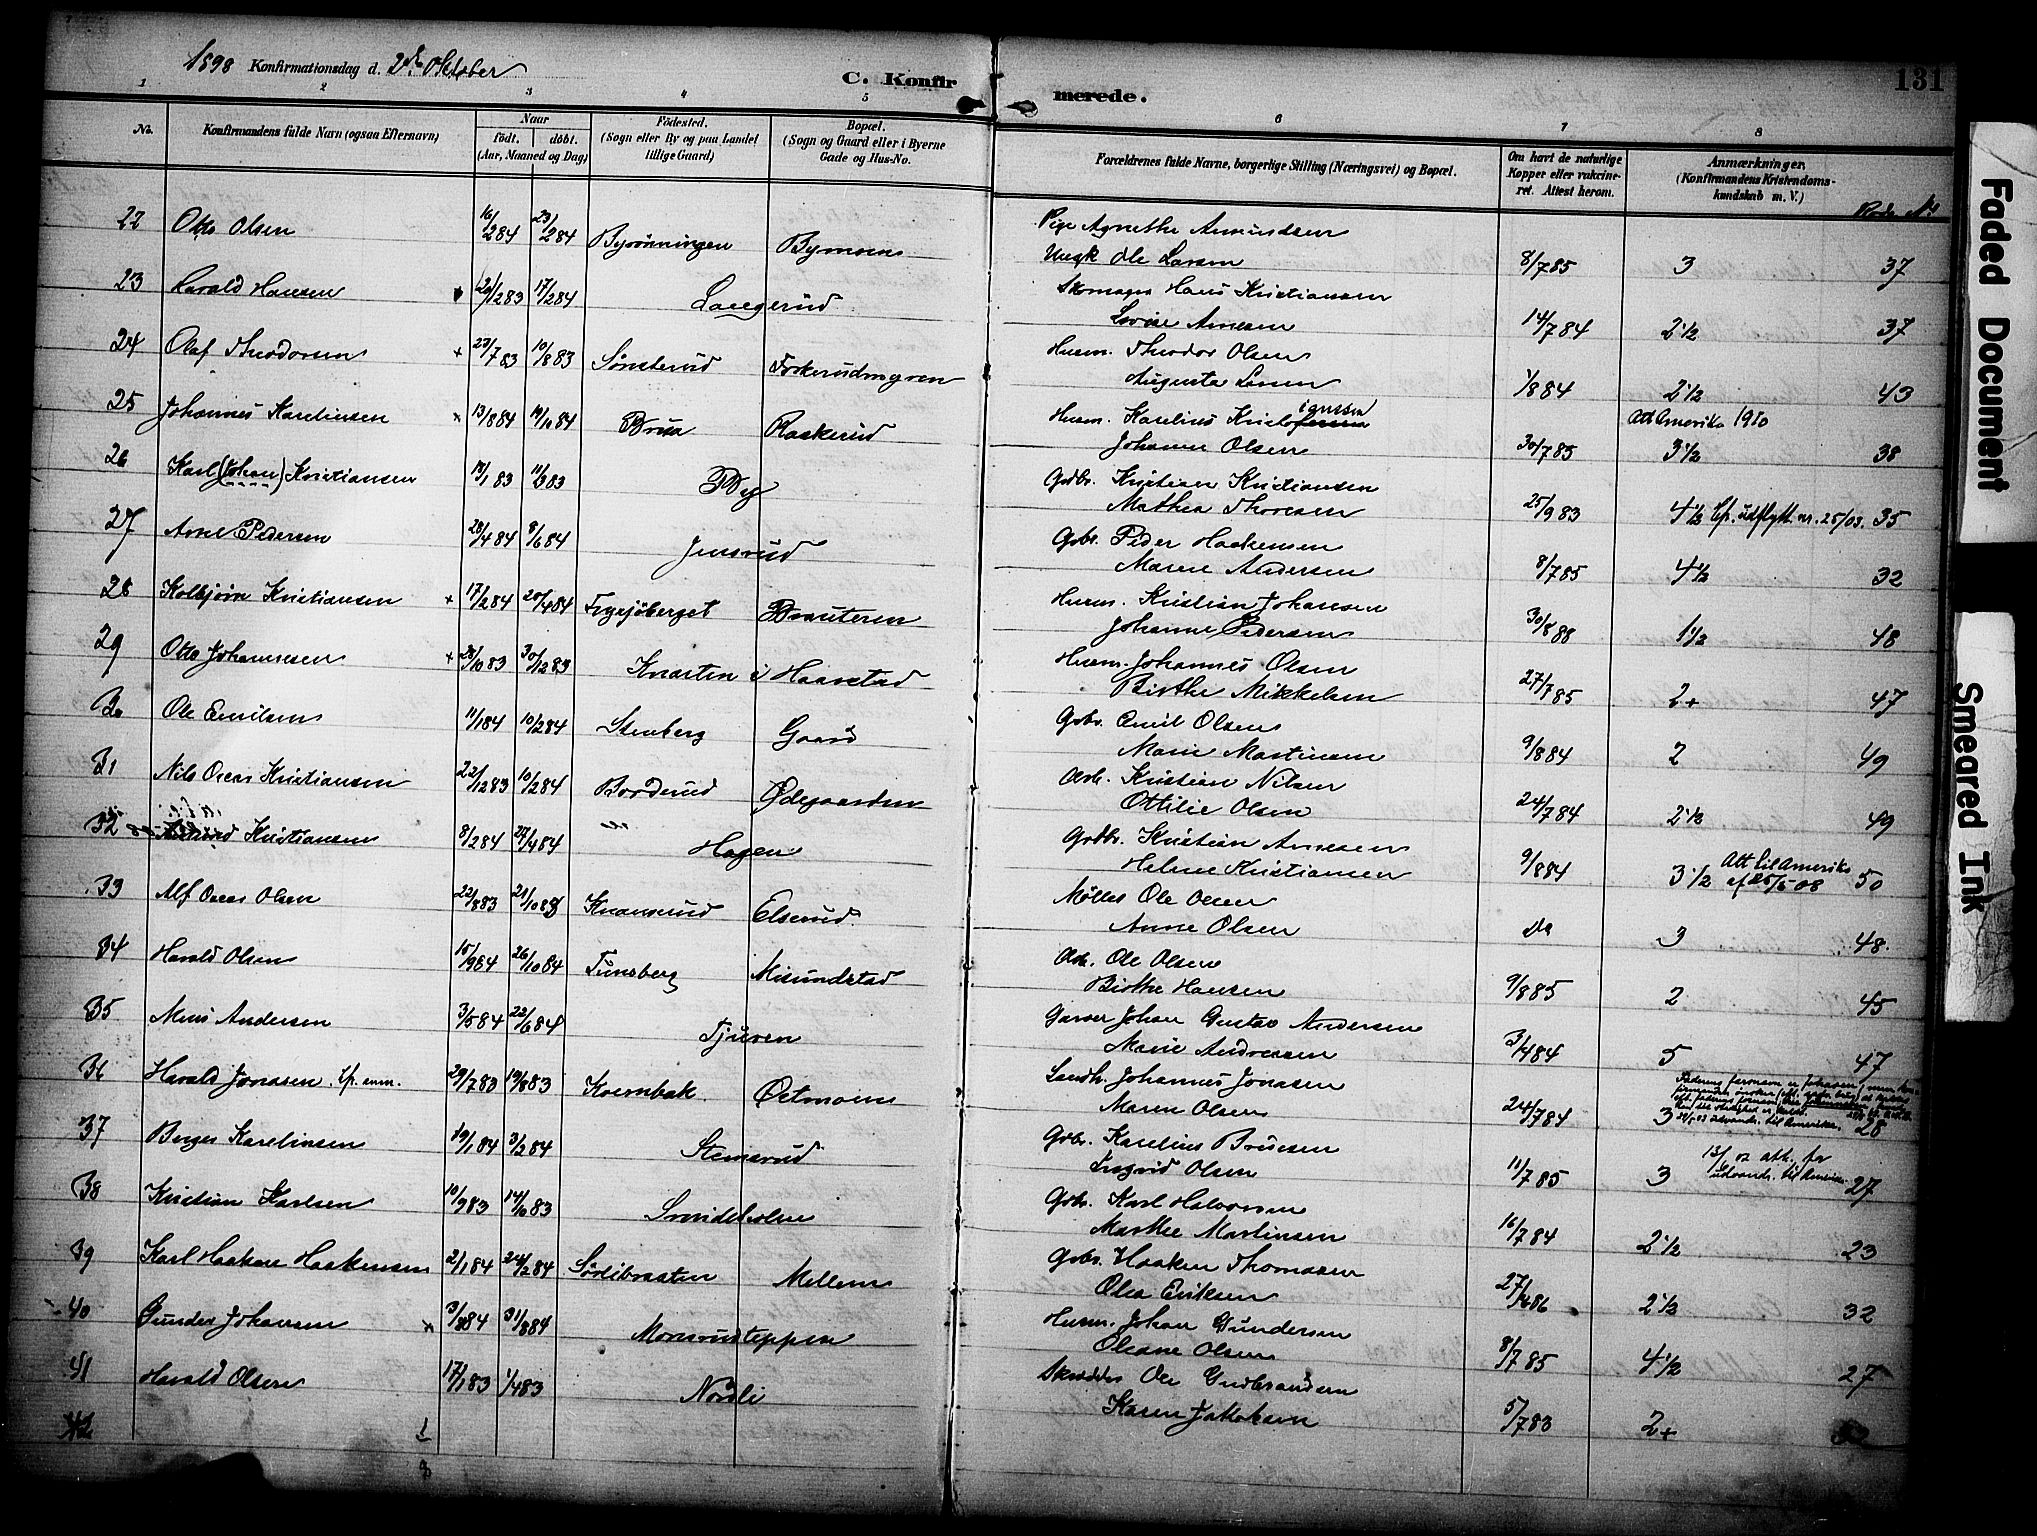 1898 Konfirmationsdag d. 2den Oktober
C. Konfir
merede.
131
1 2 3 4 5 6 7 8
No.
Konfirmandens fulde Navn (ogsaa Efternavn)
Naar
født. døbt.
(Aar, Maaned og Dag)
Fødested.
(Sogn eller By og paa Landet
tillige Gaard)
Bopæl.
(Sogn og Gaard eller i Byerne
Gade og Hus-No.
Forældrenes fulde Navne, borgerlige Stilling (Næringsvei) og Bopæl.
Om havt de naturlige
Kopper eller vakcine-
ret. Attest herom.
Anmærkninger.
(Konfirmandens Kristendoms-
kundskab m. V.)
22 Otto Olsen 16/2 84 23/2 84 Byrønningen Bymoen Pige Agnethe Amundsen
Ungk Ole Larsen 8/7 85 3 37
23 Harald Hansen 17/2 84 Langerud Skomager Hans Kristiansen
Lovise Arnesen 14/7 84 2 1/2 37
24 Olaf Theodorsen + 23/7 83 10/8 83 Sønsterud Forkerudmyren Husm. Theodor Olsen
Augusta Larsen 1/8 84 2 1/2 43
25 Johannes Karelinsen × 13/8 84 19/10 84 Brua Raakerud Husm. Karelius Kristo
Johanne Olsen 30/7 85 Att Amerika 1910 3 1/2 38
26 Karl (Johan) Kristiansen 11/3 83 By Gdbr. Kristian Kristiansen
Mathea Thoresen 25/9 83 4 1/2 Cfr. udflytt. nr. 25/03. 35
27 Arne Pedersen 28/4 84 8/6 84 Jensrud Gbr. Peder Haakensen
Maren Andersen 8/7 85 4 1/2 32
28 Kolbjørn Kristiansen + 17/2 84 20/4 84 Frysjøberget Brauteren Husm. Kristian Johansen
Johanne Pedersen 30/8 88 1 1/2 48
29 Otto Johannesen + 28/10 83 30/12 83 Knasten i Haarstad Husm. Johannes Olsen
Birthe Mikkelsen 27/7 85 2+ 47
30 Ole Emilsen 11/1 84 10/2 84 Stenberg Gaard Gbr. Emil Olsen
Marie Martinsen 9/8 84 2 49
31 Nils Oscar Kristiansen 22/12 83 10/2 84 Borderud Ødegaarden Arb. Kristian Nilsen
Ottilie Olsen 24/7 84 2 1/2 49
32 Kristiansen 8/2 84 27/4 84 Hagen Grdbr. Kristian Arnesen
Helene Kristiansen 9/8 84 3 1/2 Att til Amerika
af 25/5 08 50
33 Alf Oscar Olsen 22/8 83 21/10 83 Knaverud Elserud Møller Ole Olsen
Anne Olsen Do 3 48
34 Harald Olsen 15/9 84 26/10 84 Tunsberg Misundstad Arb. Ole Olsen
Birthe Hansen 9/8 85 2 45
35 Andersen 3/5 84 22/6 84 Tjuren Garver Johan Gustav Andersen
Marie Andresen 3/4 84 5 47
36 Harald Jonasen. Cfr. anm. 29/7 83 19/8 83 Kvernbak Østmoen Landh. Johannes Jonasen
Maren Olsen 24/7 84 3 28
37 Berger Karelinsen 19/1 84 3/2 84 Stemsrud Gbr. Karelius Bruesen
Ingrid Olsen 11/7 85 3 13/ 02 att. for
udvandr. til Amerika 27
38 Kristian Karlsen 10/9 83 14/10 83 Smideholen Gbr. Karl Halvorsen
Marthe Martinsen 16/7 84 2 1/2 23
39 Karl Haakon Haakensen 2/1 84 24/2 84 Sørlibraaten Mellem Gbr. Haaken Thomasen
Olea Eriksen 27/ 86 2 1/2 32
40 Gunder Johansen × 3/ 84 31/8 84 Monsrusteppen Husm. Johan Gundersen
Oleane Olsen 8/7 85 4 1/2 27
41 Harald Olsen 17/1 83 1/4 83 Nordli Skrædder Ole Gudbrandsen
Karen Jakobsen 5/7 83 2+
42
Faded Document
Smeared Ink